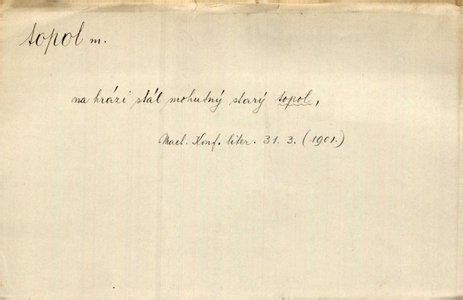 topol m.
na hrázi stát mohutný starý topol,
Mach. Konf. liter. 31. 3. (1901.)